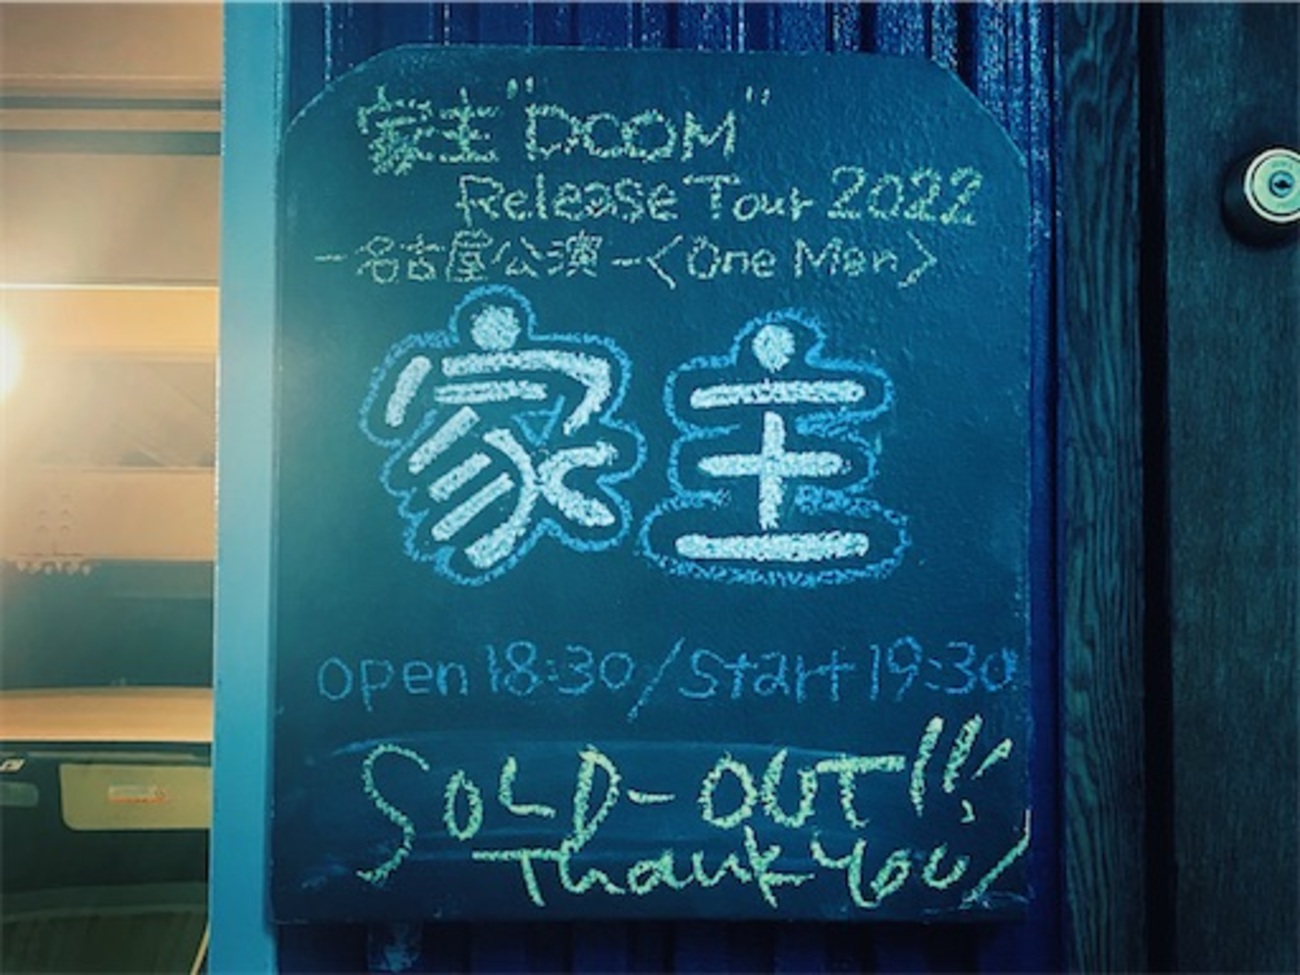 家主"DOOM"
Release Tour 2022
-名古屋公演-<One Man>
家主
open 18:30/start 19:30
SOLD-OUT!!!
Thank You/